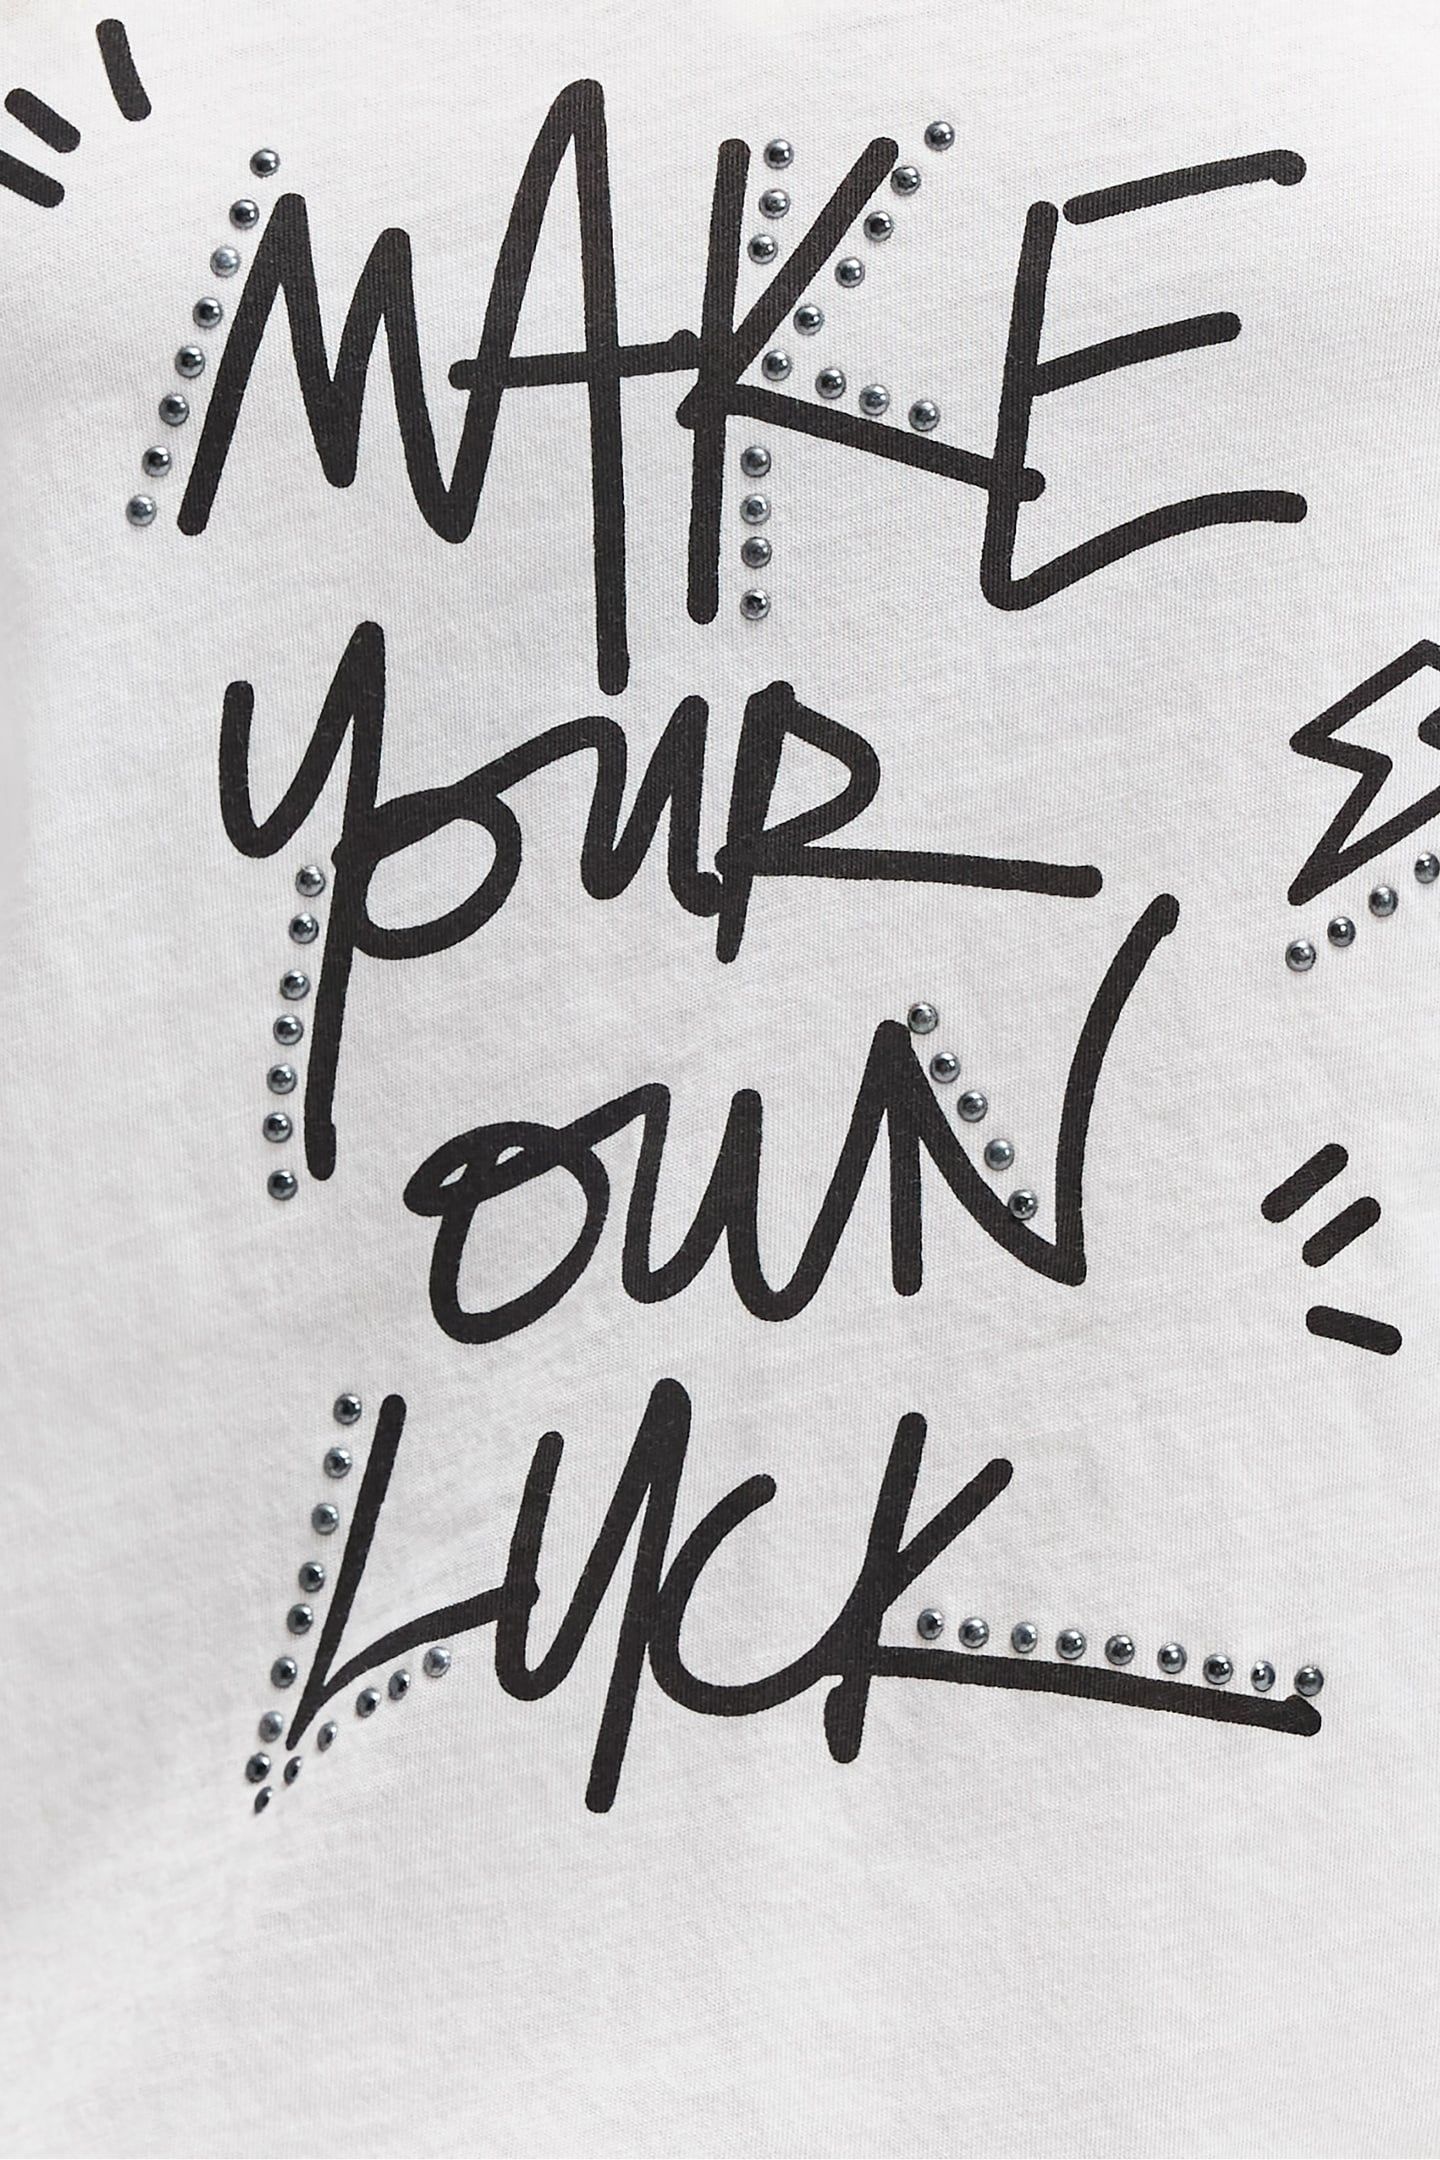 MAKE
YOUR
OWN
LUCK